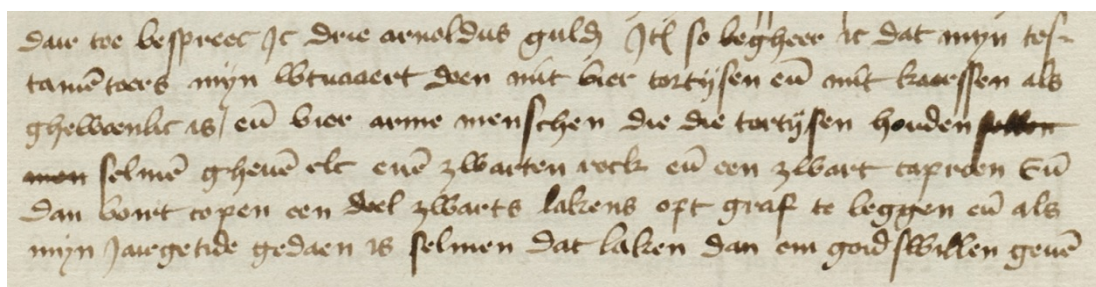 dair toe bespreec Ic drie arnoldus guld Itē so begheer ic dat myn tes-
tamētoers myn wtuaaert doen mit vier tortijsen eñ mit kaerssen als
ghewoenlic is / eñ vier arme menschen die die tortijsen houden sellen
men selmē gheuē elc enē zwarten rock eñ een zwart caproen Eñ
dan copen een deel zwarts lakens opt graf te leggen eñ als
myn Jaergetide gedaen is selmen dat laken dan om goidswillen geuē